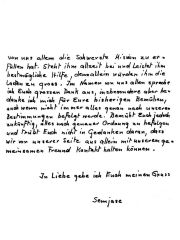 von uns allem die Schwerste Mission zu er-
füllen hat. Steht ihm allzeit bei und leistet ihm
bestmögliche Hilfe, denn allein würden ihm die
Lasten zu gross. Im Namen von uns allen spreche
ich Euch grossen Dank aus, insbesondere aber be-
danke ich mich für Eure bisherigen Bemühen,
auch wenn nicht immer alles genau nach unseren
Bestimmungen befolgt wurde. Bemüht Euch jedoch
zukünftig, alles nach genauer Ordnung zu befolgen
und trübt Euch nicht in Gedanken daran, dass
wir von unserer Seite aus allein mit unserem ge-
meinsamen Freund Kontakt halten können.
In Liebe gebe ich Euch meinen Gruss
Semjase